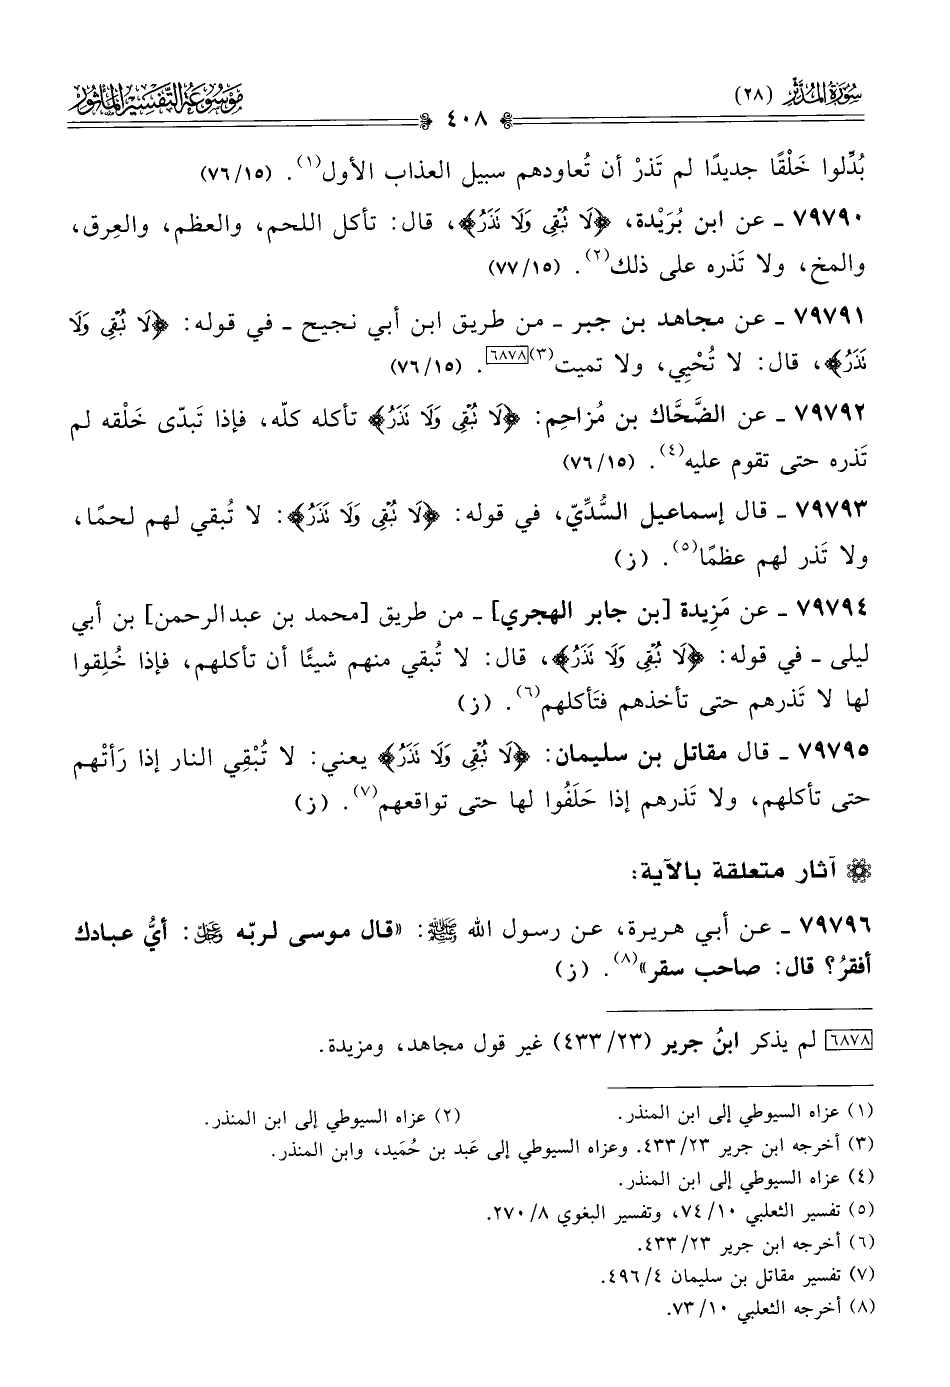 سُورَةُ المُدَّثِّر (٢٨)
موسوعة التفسير المأثور
٤٠٨
بُدِّلوا خَلْقًا جديدًا لم تَذرْ أن تُعاودهم سبيل العذاب الأول(١). (٧٦/١٥)
٧٩٧٩٠ ـ عن ابن بُرَيْدة، ﴿لَا تُبْقِى وَلَا نَذَرُ﴾، قال: تأكل اللحم، والعظم، والعِرق،
والمخ، ولا تَذره على ذلك(٢). (٧٧/١٥)
٧٩٧٩١ ـ عن مجاهد بن جبر ـ من طريق ابن أبي نجيح ـ في قوله: ﴿لَا تُبْقِى وَلَا
نَذَرُ﴾، قال: لا تُحْيِي، ولا تميت(٣)[٦٨٧٨]. (٧٦/١٥)
٧٩٧٩٢ ـ عن الضَّحَّاك بن مُزاحِم: ﴿لَا تُبْقِى وَلَا نَذَرُ﴾ تأكله كلّه، فإذا تَبدّى خَلْقه لم
تَذره حتى تقوم عليه(٤). (٧٦/١٥)
٧٩٧٩٣ ـ قال إسماعيل السُّدِّيّ، في قوله: ﴿لَا تُبْقِى وَلَا نَذَرُ﴾: لا تُبقي لهم لحمًا،
ولا تَذر لهم عظمًا(٥). (ز)
٧٩٧٩٤ ـ عن مَزِيدة [بن جابر الهجري] ـ من طريق [محمد بن عبدالرحمن] بن أبي
ليلى ـ في قوله: ﴿لَا تُبْقِى وَلَا نَذَرُ﴾، قال: لا تُبقي منهم شيئًا أن تأكلهم، فإذا خُلِقوا
لها لا تَذرهم حتى تأخذهم فتَأكلهم(٦). (ز)
٧٩٧٩٥ ـ قال مقاتل بن سليمان: ﴿لَا تُبْقِى وَلَا نَذَرُ﴾ يعني: لا تُبْقِي النار إذا رَأتْهم
حتى تأكلهم، ولا تَذرهم إذا حَلَفُوا لها حتى تواقعهم(٧). (ز)
آثار متعلقة بالآية:
٧٩٧٩٦ ـ عن أبي هريرة، عن رسول الله ﷺ: «قال موسى لربّه ﷿: أيُّ عبادك
أفقرُ؟ قال: صاحب سقر»(٨). (ز)
[٦٨٧٨] لم يذكر ابنُ جرير (٤٣٣/٢٣) غير قول مجاهد، ومزيدة.
(١) عزاه السيوطي إلى ابن المنذر. (٢) عزاه السيوطي إلى ابن المنذر.
(٣) أخرجه ابن جرير ٤٣٣/٢٣. وعزاه السيوطي إلى عَبد بن حُمَيد، وابن المنذر.
(٤) عزاه السيوطي إلى ابن المنذر.
(٥) تفسير الثعلبي ٧٤/١٠، وتفسير البغوي ٢٧٠/٨.
(٦) أخرجه ابن جرير ٤٣٣/٢٣.
(٧) تفسير مقاتل بن سليمان ٤٩٦/٤.
(٨) أخرجه الثعلبي ٧٣/١٠.